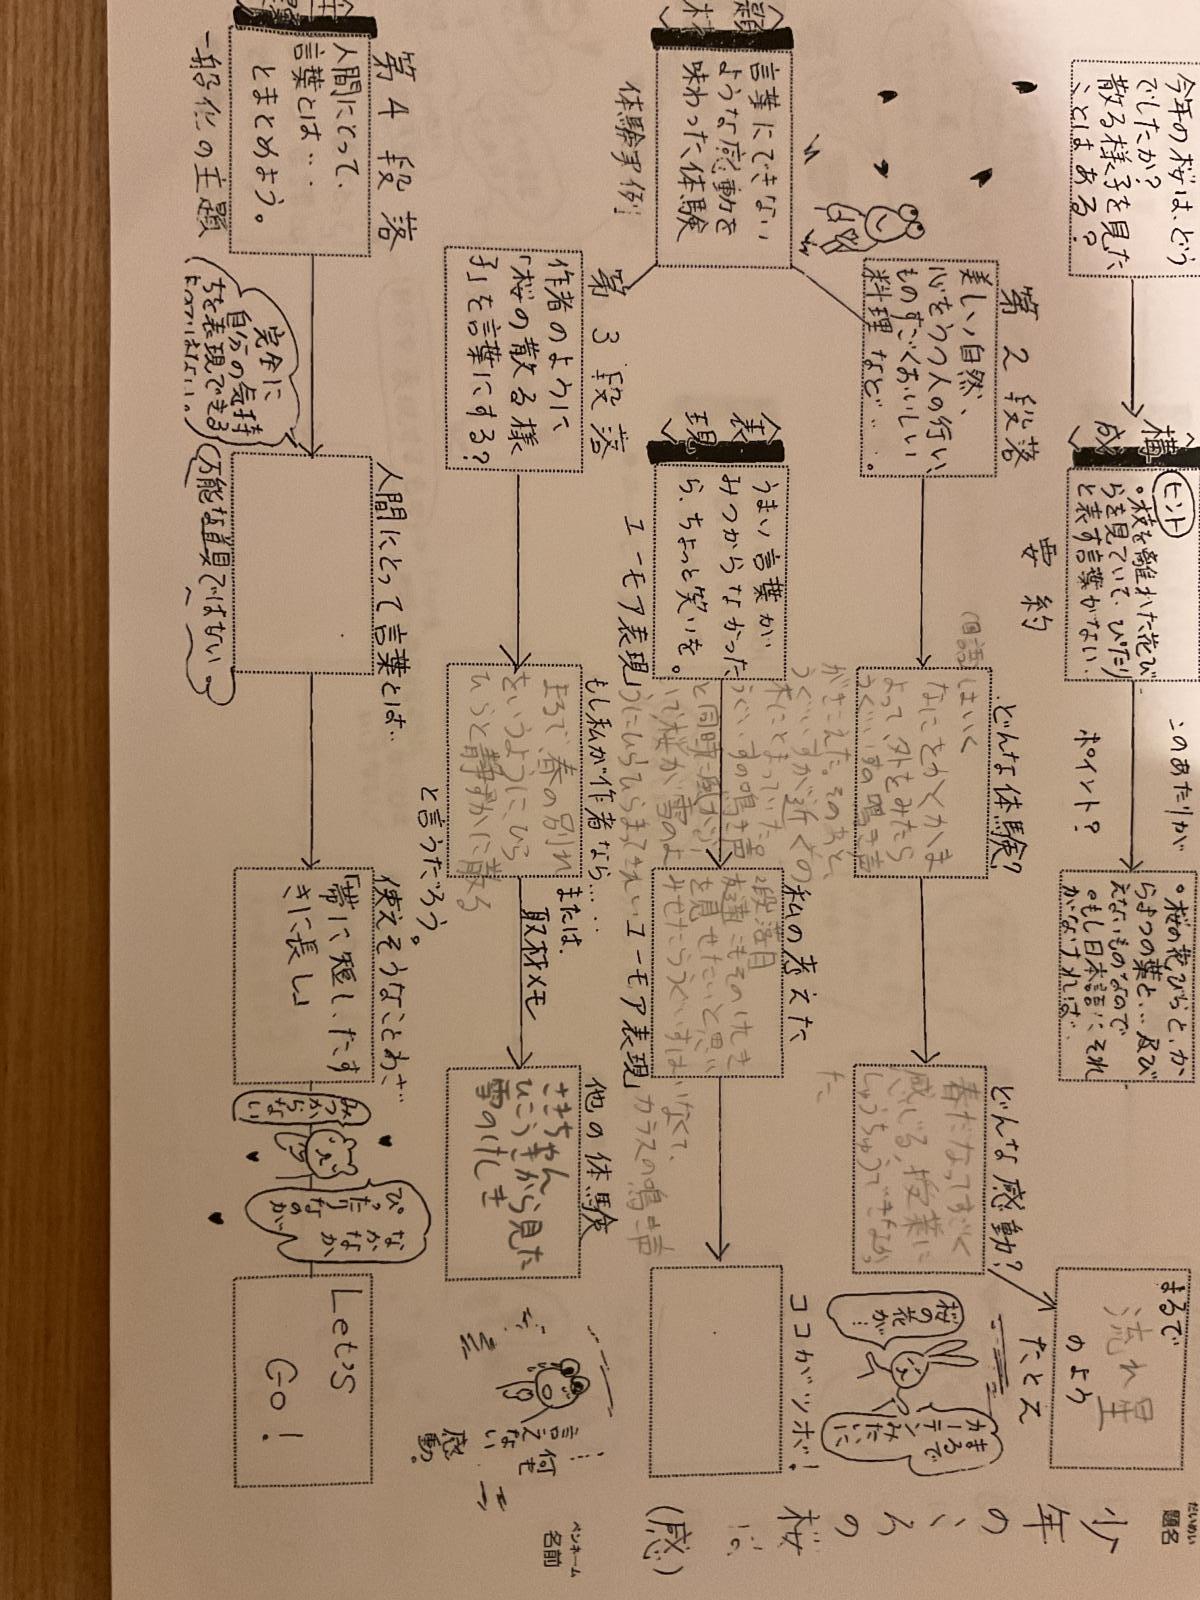 だいめい
題名
少年のころの桜に(感)
ペンネーム
名前
今年の桜は、どう
でしたか?
散る様子を見た
ことはある?
<構成>
ヒント
。枝を離れた花び
らを見ていて、ぴたり
と表す言葉がない。
このあたりが
ポイント?
。桜の花びらと、か
らまつの葉と…及び
えないものなので
。もし日本語にそれ
がなければ…
たとえ
まるで
流れ星
のよう
第2段落
要約
美しい自然、
心をうつ人の行い、
ものすごくおいしい
料理など…。
どんな体験?
国語
はいく
なにをかくかま
よって、外をみたら
うぐいすの鳴き声
がきこえた。そのあと、
うぐいすが近くの
木にとまっていた。
うぐいすの鳴き声
と同時に風がふ
いて桜が雪のよ
うにひらひらまってきれい
どんな感動?
春だなってすごく
感じる、授業に
しゅうちゅうできなかっ
た
桜の花
が…
まるで
カーテン
みたいに
<題材>
言葉にできない
ような感動を
味わった体験
体験実例
<表現>
うまい言葉が
みつからなかった
ら、ちょっと笑いを。
ユーモア表現
私の考えた
ユーモア表現
友達にもそのけしき
を見せたいと思い
みせたらうぐいすは
いなくて、
カラスの鳴き声
ココがツボ!
第3段落
作者のように
「桜の散る様
子」を言葉にする?
もし私が作者なら…
まるで、春の別れ
というように、ひら
ひらと静かに散る
と言うだろう。
または
取材メモ
他の体験
さきちゃん
ひこうきから見た
雪のけしき
…何も
言えない
感動。
第4段落
<主題>
人間にとって、
言葉とは…
とまとめよう。
一般化の主題
完全に
自分の気持
ちを表現できる
とはかぎらない。
人間にとって言葉とは…
万能な道具ではない
使えそうなことわざ…
「帯に短し、たす
きに長し」
みつからない
なかなか
ぴったりなのが
Let's
Go!